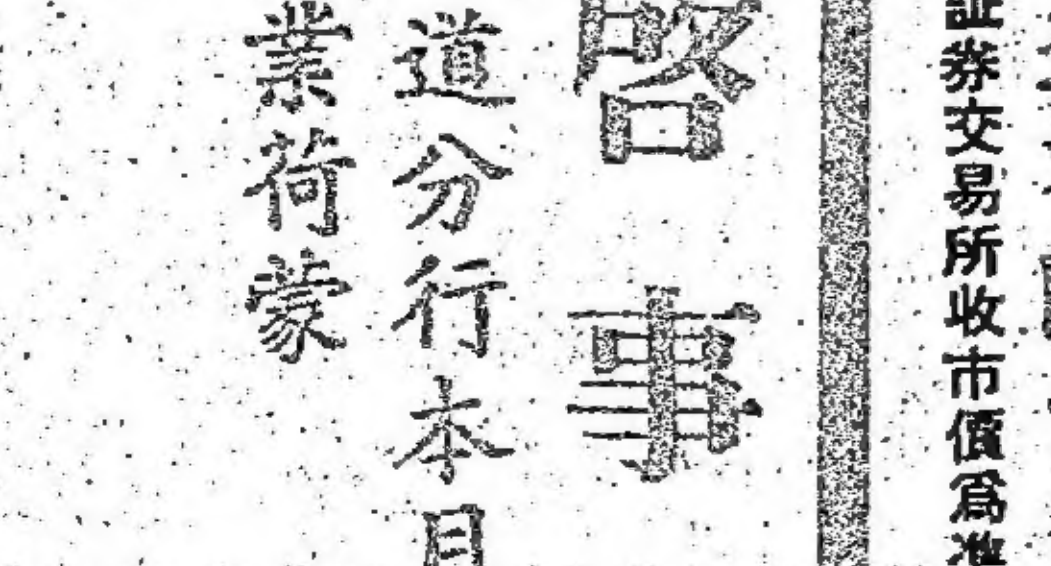 証券交易所收市價為準
啓事
道分行本月
業荷蒙